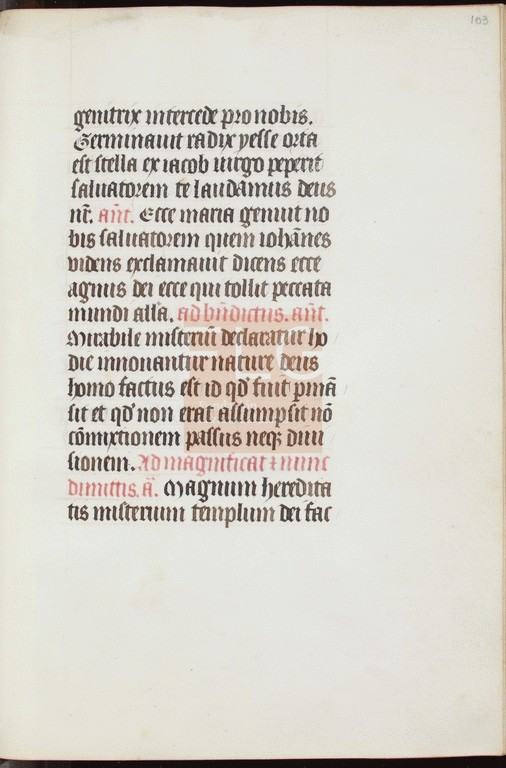 103
genitrix intercede pro nobis.
Germinauit radix yesse orta
est stella ex iacob uirgo peperit
saluatorem te laudamus deus
nr̄. an̄t. Ecce maria genuit no
bis saluatorem quem iohānes
videns exclamauit dicens ecce
agnus dei ecce qui tollit peccata
mundi alla. ad bn̄dictus. an̄t.
Mirabile misteriū declaratur ho
die innouantur nature deus
homo factus est id qd̄ fuit pmā
sit et qd̄ non erat assumpsit nō
cōmixtionem passus neqꝫ diui
sionem. Ad magnificat ⁊ nunc
dimittis. ā. Magnum heredita
tis misterium templum dei fac